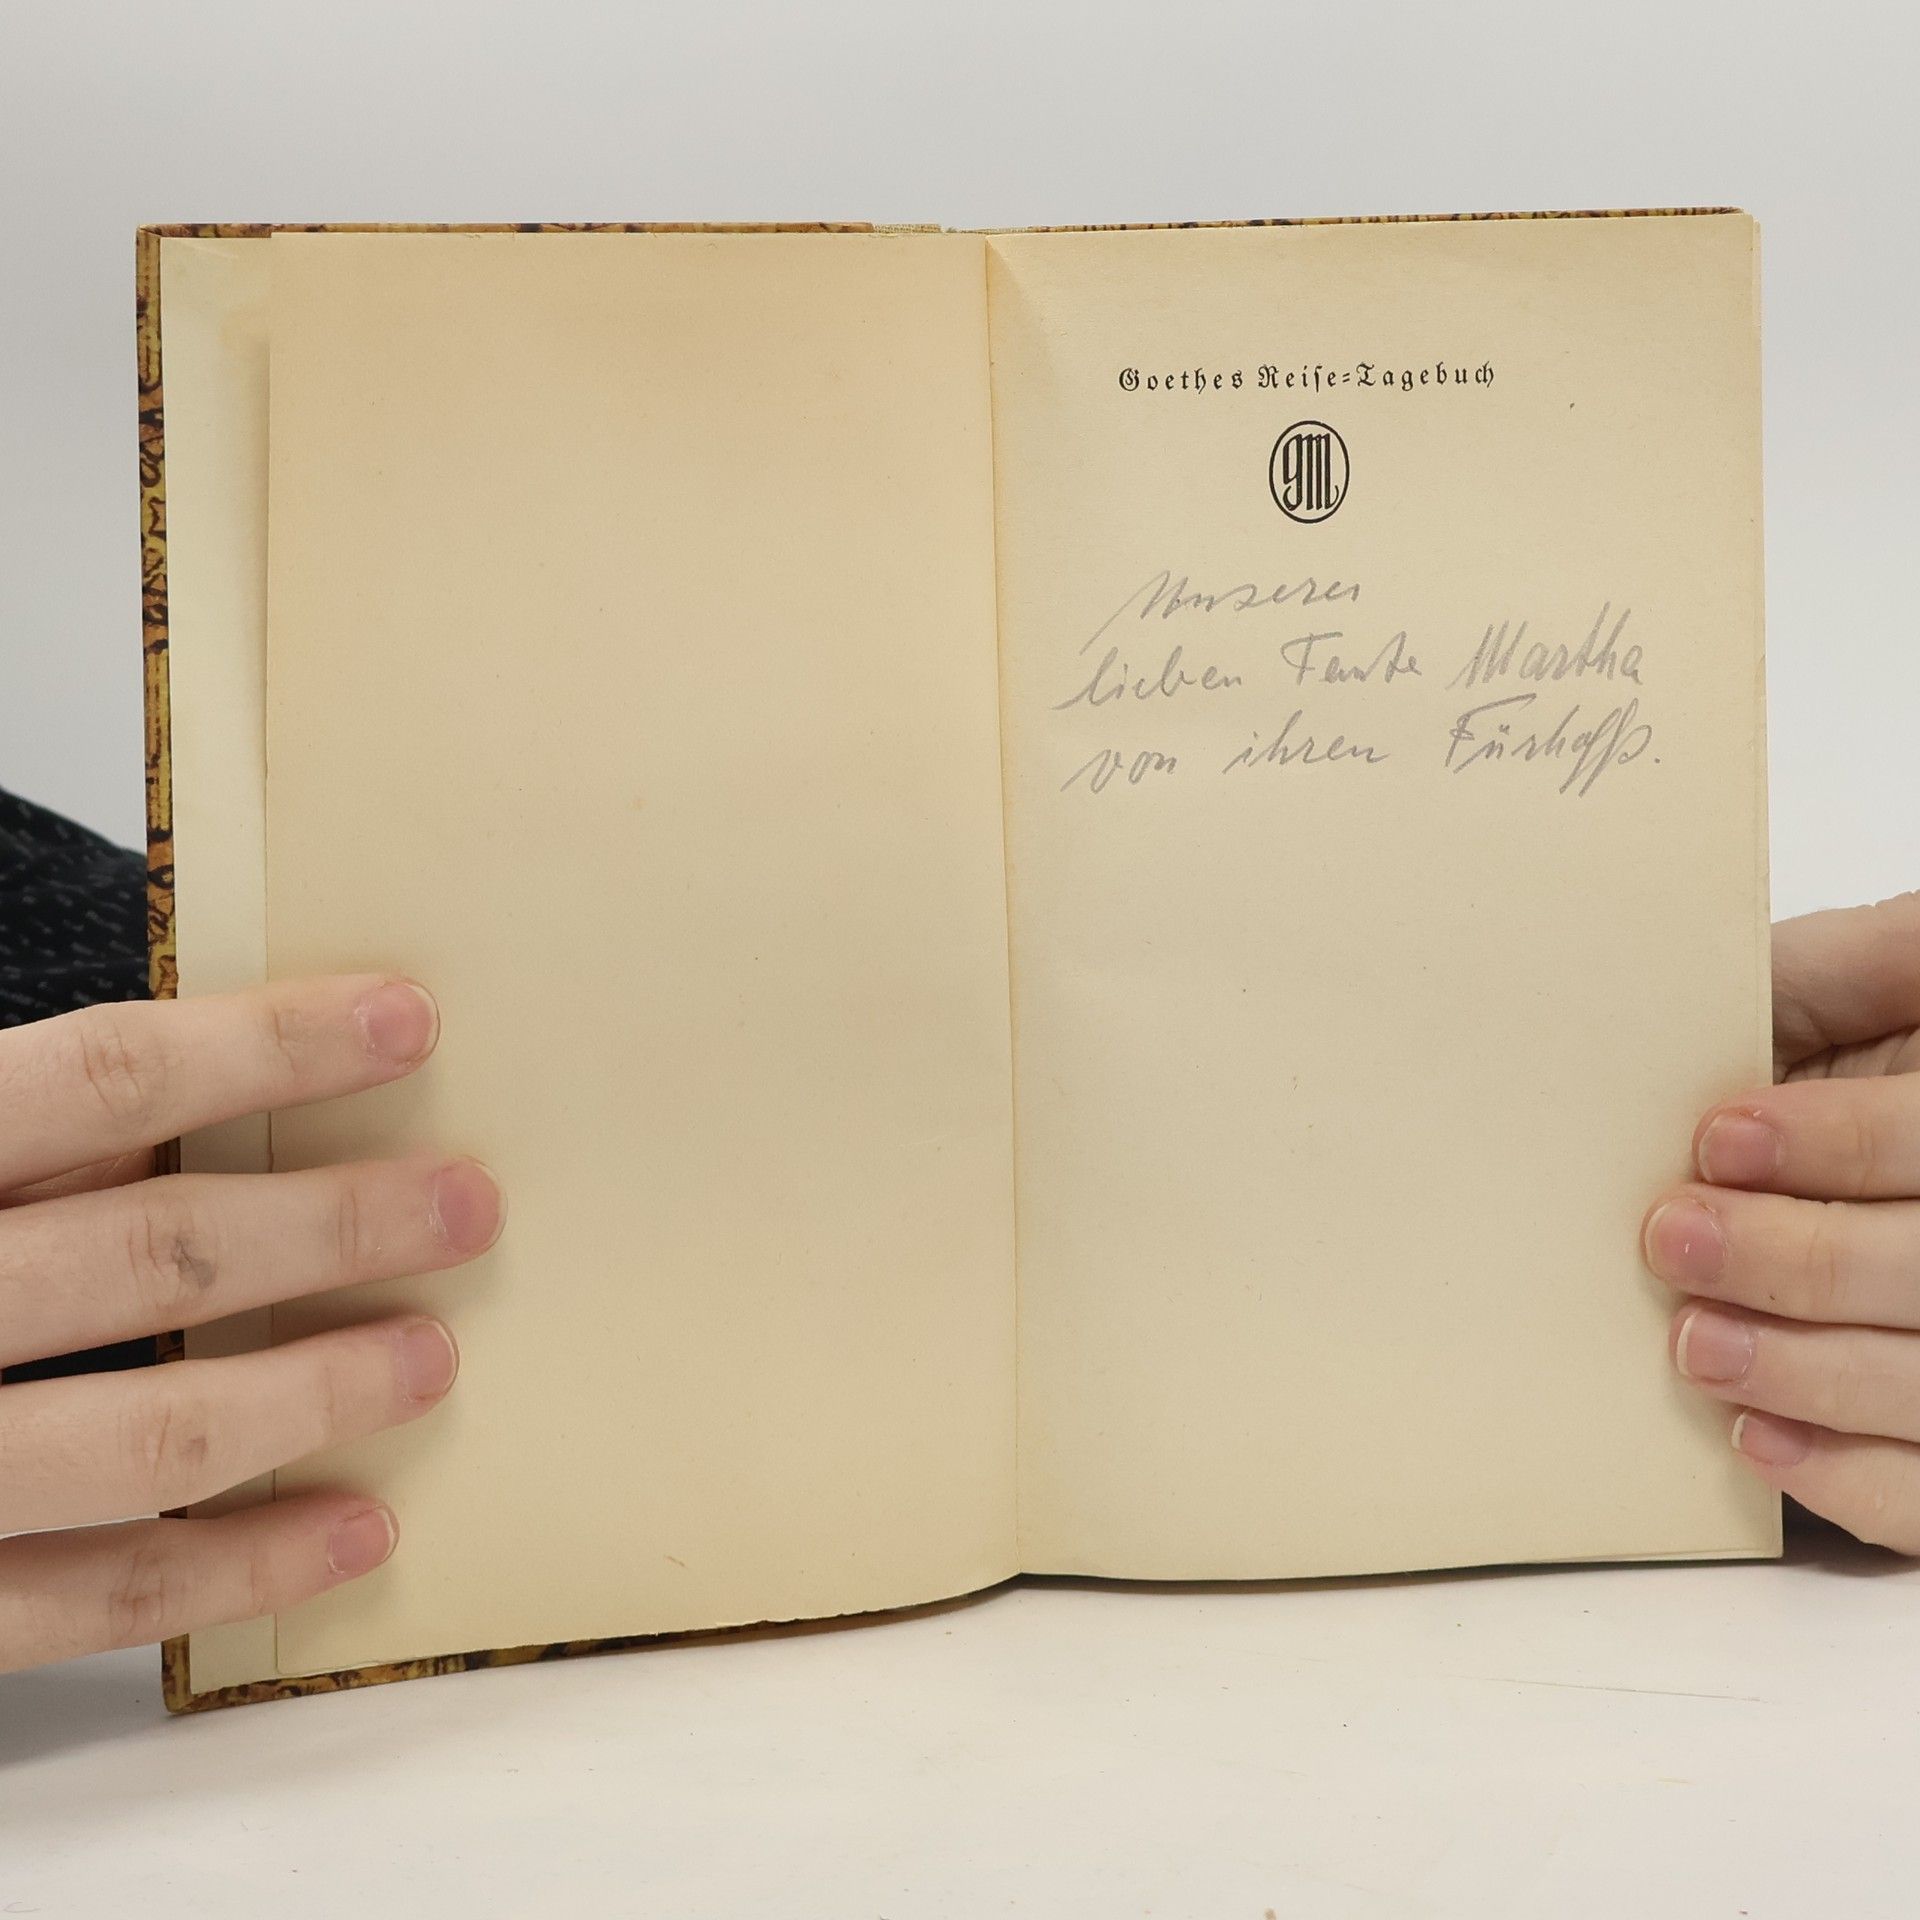 Goethes Reise=Tagebuch
gM
Unserer
lieben Tante Martha
von ihren